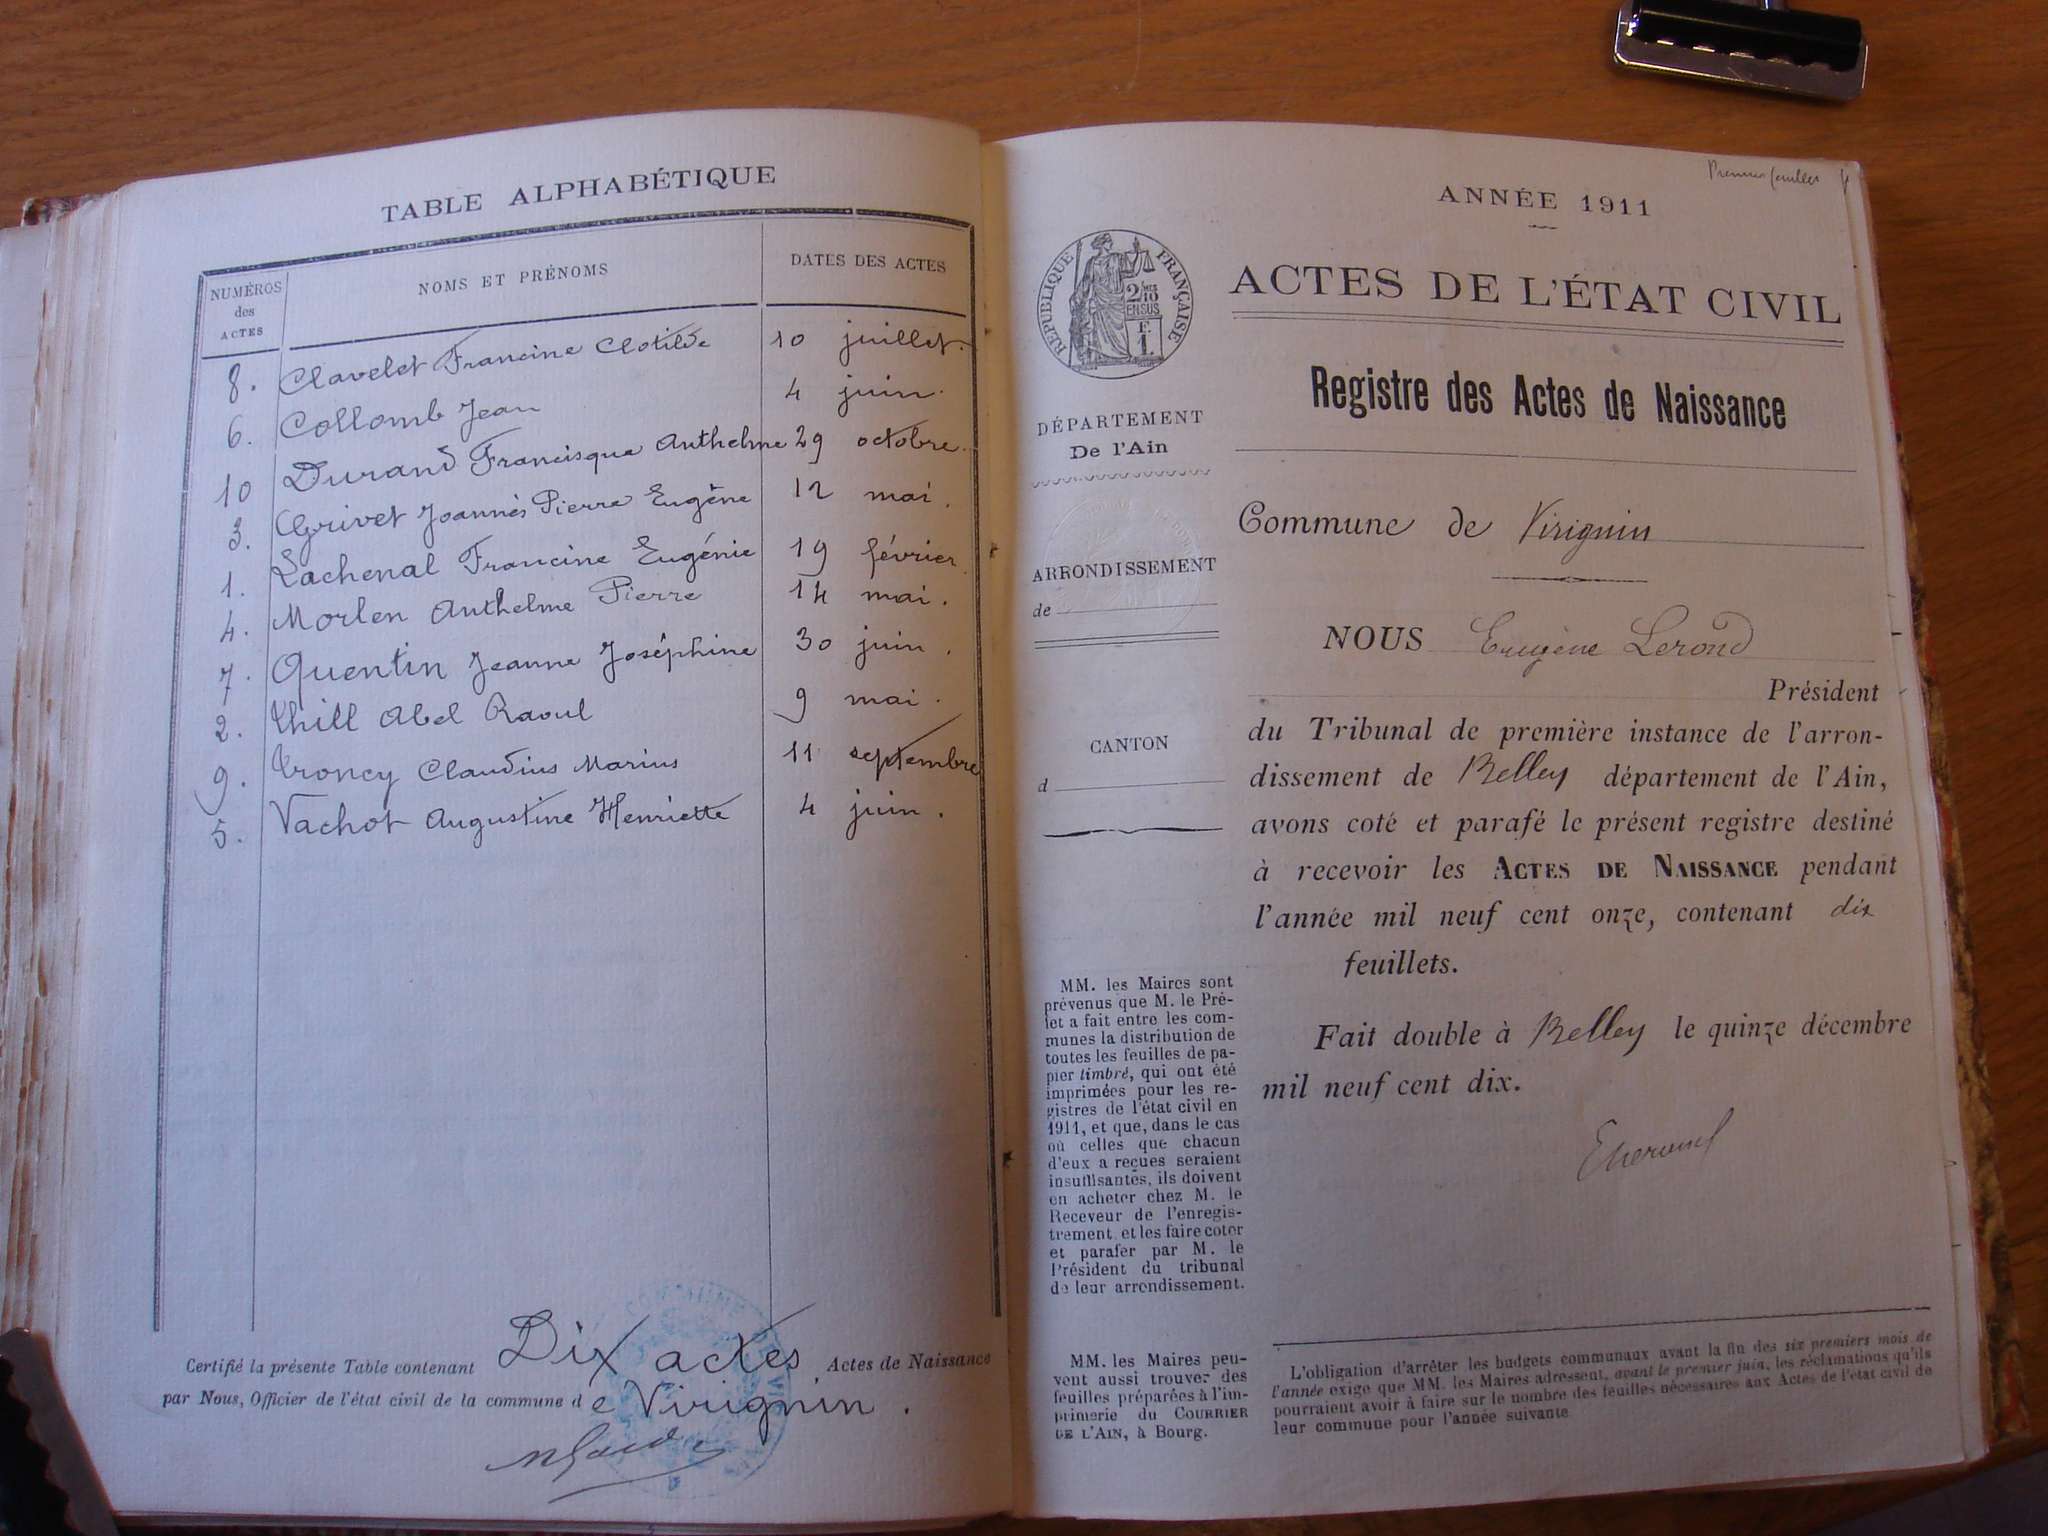 TABLE ALPHABÉTIQUE
NUMÉROS des ACTES NOMS ET PRÉNOMS DATES DES ACTES
8. Clavelet Francine Clotilde 10 juillet.
6. Collomb Jean 4 juin.
10 Durand Francisque Anthelme 29 octobre.
3. Grivet Joannès Pierre Eugène 12 mai.
1. Lachenal Francine Eugénie 19 février.
4. Morlen Anthelme Pierre 14 mai.
7. Quentin Jeanne Joséphine 30 juin.
2. Thill Abel Raoul 9 mai.
9. Troncy Claudius Marius 11 septembre
5. Vachot Augustine Henriette 4 juin.
Certifié la présente Table contenant Dix actes Actes de Naissance
par Nous, Officier de l'état civil de la commune de Virignin.
Premier feuillet
ANNÉE 1911
ACTES DE L'ÉTAT CIVIL
Registre des Actes de Naissance
RÉPUBLIQUE FRANÇAISE
2/10 EN SUS
F.
1.
DÉPARTEMENT
De l'Ain
ARRONDISSEMENT
de
CANTON
d
MM. les Maires sont
prévenus que M. le Pré-
fet a fait entre les com-
munes la distribution de
toutes les feuilles de pa-
pier timbré, qui ont été
imprimées pour les re-
gistres de l'état civil en
1911, et que, dans le cas
où celles que chacun
d'eux a reçues seraient
insuffisantes, ils doivent
en acheter chez M. le
Receveur de l'enregis-
trement, et les faire coter
et parafer par M. le
Président du tribunal
de leur arrondissement.
MM. les Maires peu-
vent aussi trouver des
feuilles préparées à l'im-
primerie du COURRIER
DE L'AIN, à Bourg.
Commune de Virignin
NOUS Eugène Lerond
Président
du Tribunal de première instance de l'arron-
dissement de Belley département de l'Ain,
avons coté et parafé le présent registre destiné
à recevoir les ACTES DE NAISSANCE pendant
l'année mil neuf cent onze, contenant dix
feuillets.
Fait double à Belley le quinze décembre
mil neuf cent dix.
L'obligation d'arrêter les budgets communaux avant la fin des six premiers mois de
l'année exige que MM. les Maires adressent, avant le premier juin, les réclamations qu'ils
pourraient avoir à faire sur le nombre des feuilles nécessaires aux Actes de l'état civil de
leur commune pour l'année suivante